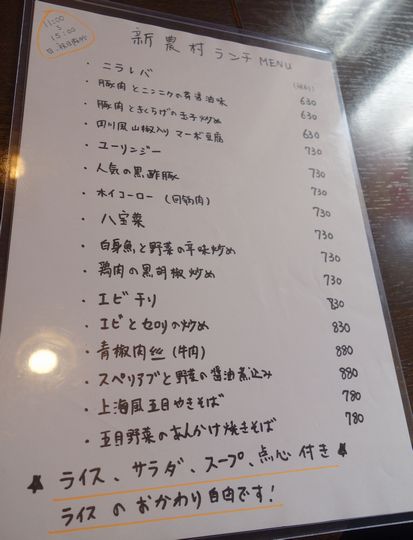 11:00
〜
15:00
日、祝日もOK
新農村 ランチ MENU
(税別)
・ニラレバ 630
・豚肉とニンニクの芽醤油味 630
・豚肉ときくらげの玉子炒め 630
・四川風山椒入りマーボ豆腐 730
・ユーリンジー 730
・人気の黒酢豚 730
・ホイコーロー (回鍋肉) 730
・八宝菜 730
・白身魚と野菜の辛味炒め 730
・鶏肉の黒胡椒炒め 730
・エビチリ 830
・エビとセロリの炒め 830
・青椒肉絲 (牛肉) 880
・スペリアブと野菜の醤油煮込み 880
・上海風五目やきそば 780
・五目野菜のあんかけ焼きそば 780
★ ライス、サラダ、スープ、点心 付き ★
ライス の おかわり 自由です!